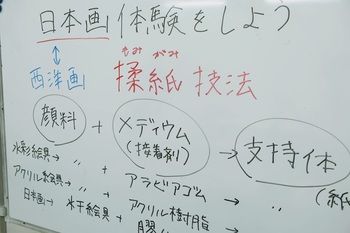 日本画体験をしよう
↕
もみ がみ
西洋画 揉紙 技法
顔料 + メディウム(接着剤) → 支持体
(紙
水彩絵具→ 〃 + アラビアゴム → 〃
アクリル絵具→ 〃 + アクリル樹脂
日本画→ 水干絵具 + 膠